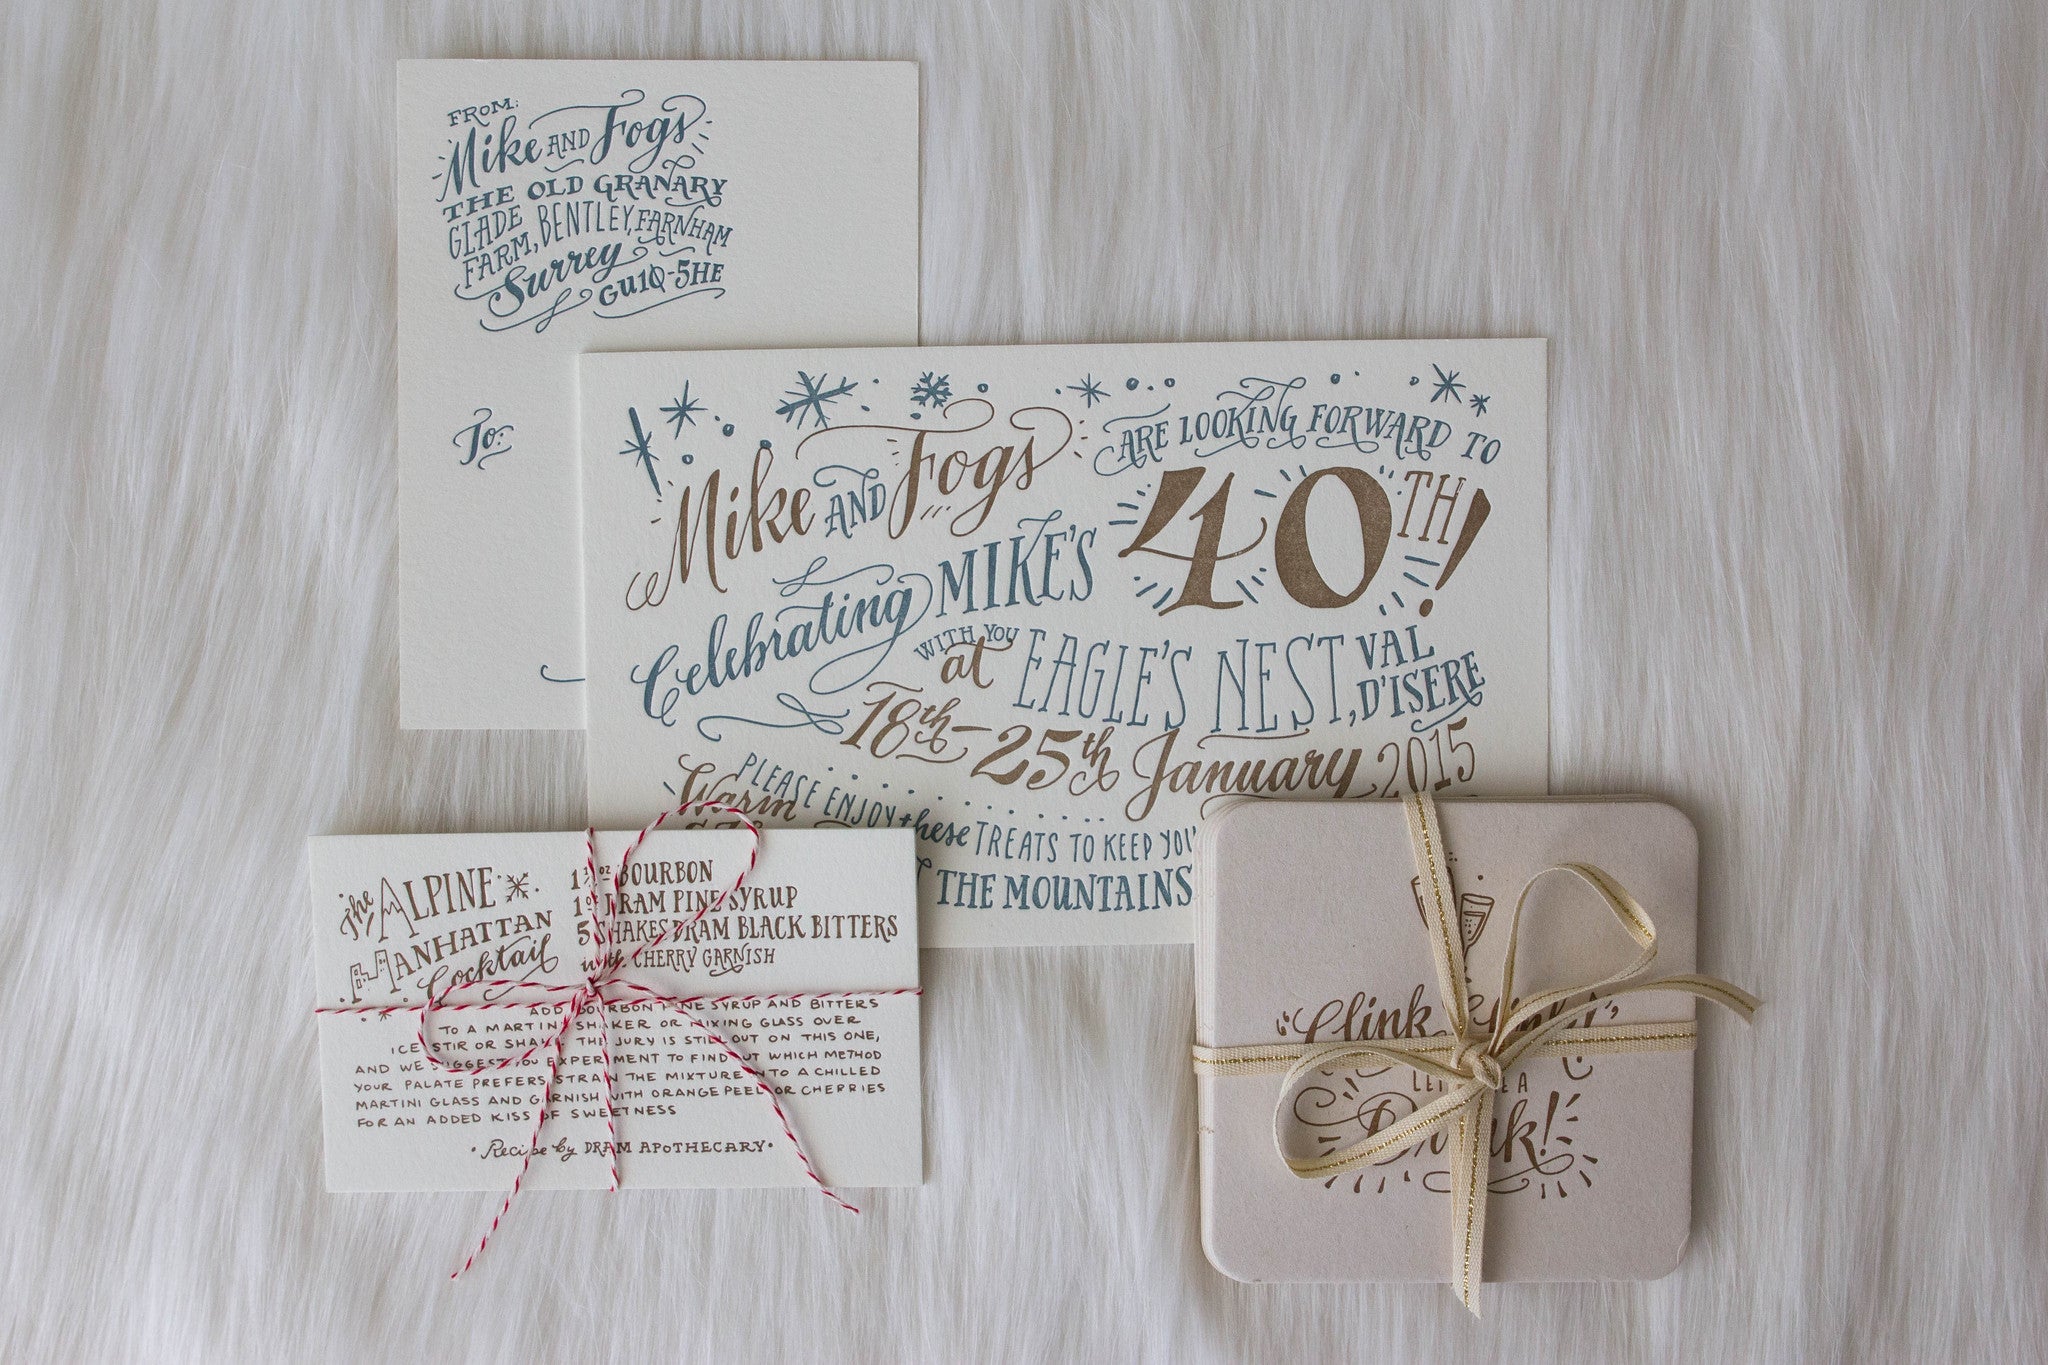 FROM:
Mike AND Fogs
THE OLD GRANARY
GLADE
FARM, BENTLEY, FARNHAM
Surrey
GU1Q-5HE
To:
Mike AND Fogs ARE LOOKING FORWARD TO
Celebrating MIKE'S 40TH!
WITH YOU
at EAGLE'S NEST, VAL
D'ISERE
18th-25th January 2015
PLEASE ENJOY these TREATS TO KEEP YOU
Warm
THE MOUNTAINS
The ALPINE
MANHATTAN
Cocktail
1 1/2 oz BOURBON
1 oz DRAM PINE SYRUP
5 SHAKES DRAM BLACK BITTERS
with CHERRY GARNISH
ADD BOURBON PINE SYRUP AND BITTERS
TO A MARTINI SHAKER OR MIXING GLASS OVER
ICE STIR OR SHAKE. THE JURY IS STILL OUT ON THIS ONE,
AND WE SUGGEST YOU EXPERIMENT TO FIND OUT WHICH METHOD
YOUR PALATE PREFERS STRAIN THE MIXTURE INTO A CHILLED
MARTINI GLASS AND GARNISH WITH ORANGE PEEL OR CHERRIES
FOR AN ADDED KISS OF SWEETNESS
• Recipe by DRAM APOTHECARY •
"Clink
A
Drink!